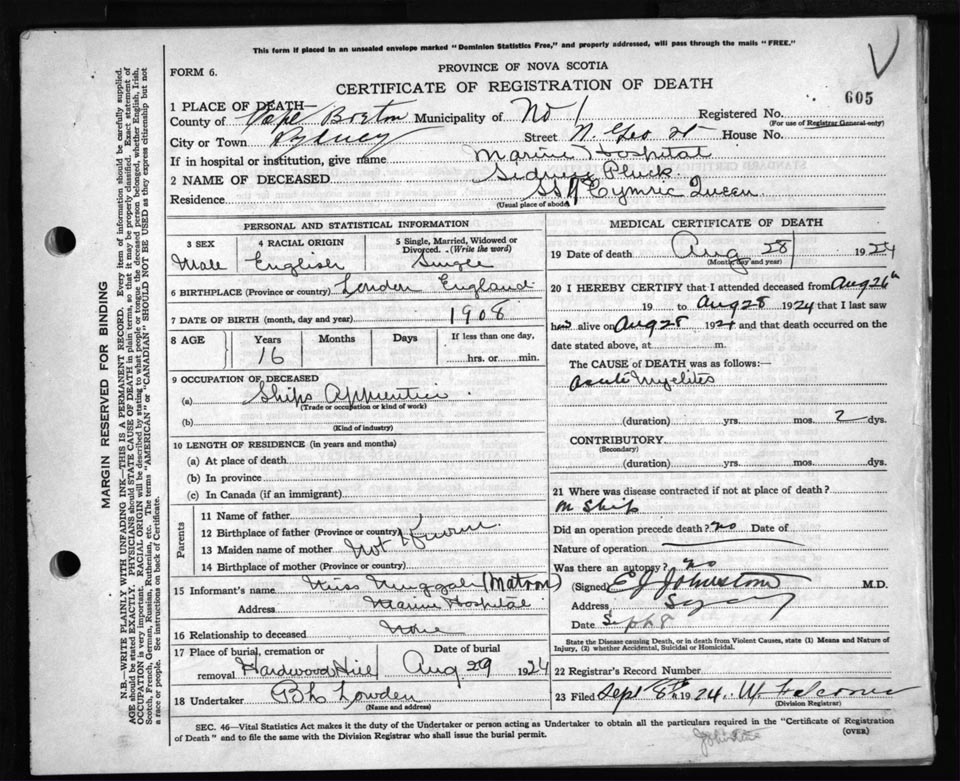 This form if placed in an unsealed envelope marked "Dominion Statistics Free," and properly addressed, will pass through the mails "FREE."
FORM 6.
PROVINCE OF NOVA SCOTIA
CERTIFICATE OF REGISTRATION OF DEATH
605
1 PLACE OF DEATH—
County of Cape Breton Municipality of No 1 Registered No.
(For use of Registrar General only)
City or Town Sydney Street N. Geo St House No.
If in hospital or institution, give name Marine Hospital
2 NAME OF DECEASED Sidney Pluck
Residence SS Cymric Queen
(Usual place of abode)
PERSONAL AND STATISTICAL INFORMATION
3 SEX 4 RACIAL ORIGIN 5 Single, Married, Widowed or Divorced. (Write the word)
Male English Single
6 BIRTHPLACE (Province or country) London England
7 DATE OF BIRTH (month, day and year) 1908
8 AGE Years Months Days If less than one day,
16 hrs. or min.
9 OCCUPATION OF DECEASED
(a) Ships Apprentice
(Trade or occupation or kind of work)
(b)
(Kind of industry)
10 LENGTH OF RESIDENCE (in years and months)
(a) At place of death
(b) In province
(c) In Canada (if an immigrant)
Parents
11 Name of father
12 Birthplace of father (Province or country)
13 Maiden name of mother Not Known
14 Birthplace of mother
15 Informant's name Miss (Matron)
Address Marine Hospital
16 Relationship to deceased None
17 Place of burial, cremation or removal Hardwood Hill
Date of burial
Aug 29 1924
18 Undertaker Lowden
(Name and address)
MEDICAL CERTIFICATE OF DEATH
19 Date of death Aug 28 1924
(Month, day and year)
20 I HEREBY CERTIFY that I attended deceased from Aug 26th
19 to Aug 28 1924 that I last saw
him alive on Aug 28 1924 and that death occurred on
date stated above, at m.
The CAUSE OF DEATH was as follows:
Acute Myelites
(duration) yrs. mos. 2 dys.
CONTRIBUTORY
(Secondary)
(duration) yrs. mos. dys.
21 Where was disease contracted if not at place of death?
on Ship
Did an operation precede death? no Date of
Nature of operation
Was there an autopsy? no
(Signed) E J Johnstone M.D.
Address Sydney
Date Sept 8
State the Disease causing Death, or in death from Violent Causes, state (1) Means and Nature of
Injury, (2) whether Accidental, Suicidal or Homicidal.
22 Registrar's Record Number
23 Filed Sept 8th 1924 W Falconer
(Division Registrar)
SEC. 46—Vital Statistics Act makes it the duty of the Undertaker or person acting as Undertaker to obtain all the particulars required in the "Certificate of Registration
of Death" and to file the same with the Division Registrar who shall issue the burial permit.
(OVER)
Johnstone
MARGIN RESERVED FOR BINDING
N.B.—WRITE PLAINLY WITH UNFADING INK—THIS IS A PERMANENT RECORD. Every item of information should be carefully supplied.
AGE should be stated EXACTLY. PHYSICIANS should STATE CAUSE OF DEATH in plain terms, so that it may be properly classified. Exact statement of
OCCUPATION is very important. RACIAL ORIGIN will be described by stating to what people or tongue the deceased person belonged, whether English, Irish,
Scotch, French, German, Russian, Ruthenian, etc. The terms "AMERICAN" or "CANADIAN" SHOULD NOT BE USED as they express citizenship but not
a race or people. See instructions on back of Certificate.